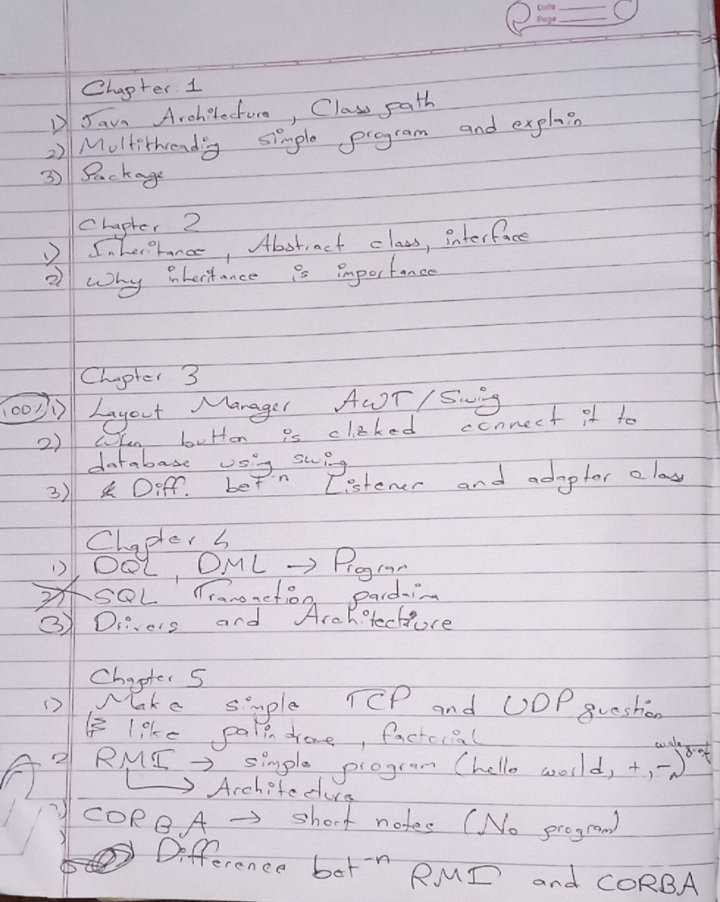 Date
Page
Chapter 1
1) Java Architecture, Class path
2) Multithreadig simple program and explain
3) Package
Chapter 2
1) Inheritance, Abstract class, interface
2) Why inheritance is importance
Chapter 3
100% 1) Layout Manager AWT/Swing
2) When button is clicked connect it to
database using swing
3) Diff. betn Listener and adapter class
Chapter 4
1) DQL, DML → Program
2) SQL Transaction
3) Drivers and Architecture
Chapter 5
1) Make simple TCP and UDP question
like palindrome, factorial
2) RMI → simple program (hello world, +, -)
→ Architecture
CORBA → short notes (No program)
Difference bet-n RMI and CORBA